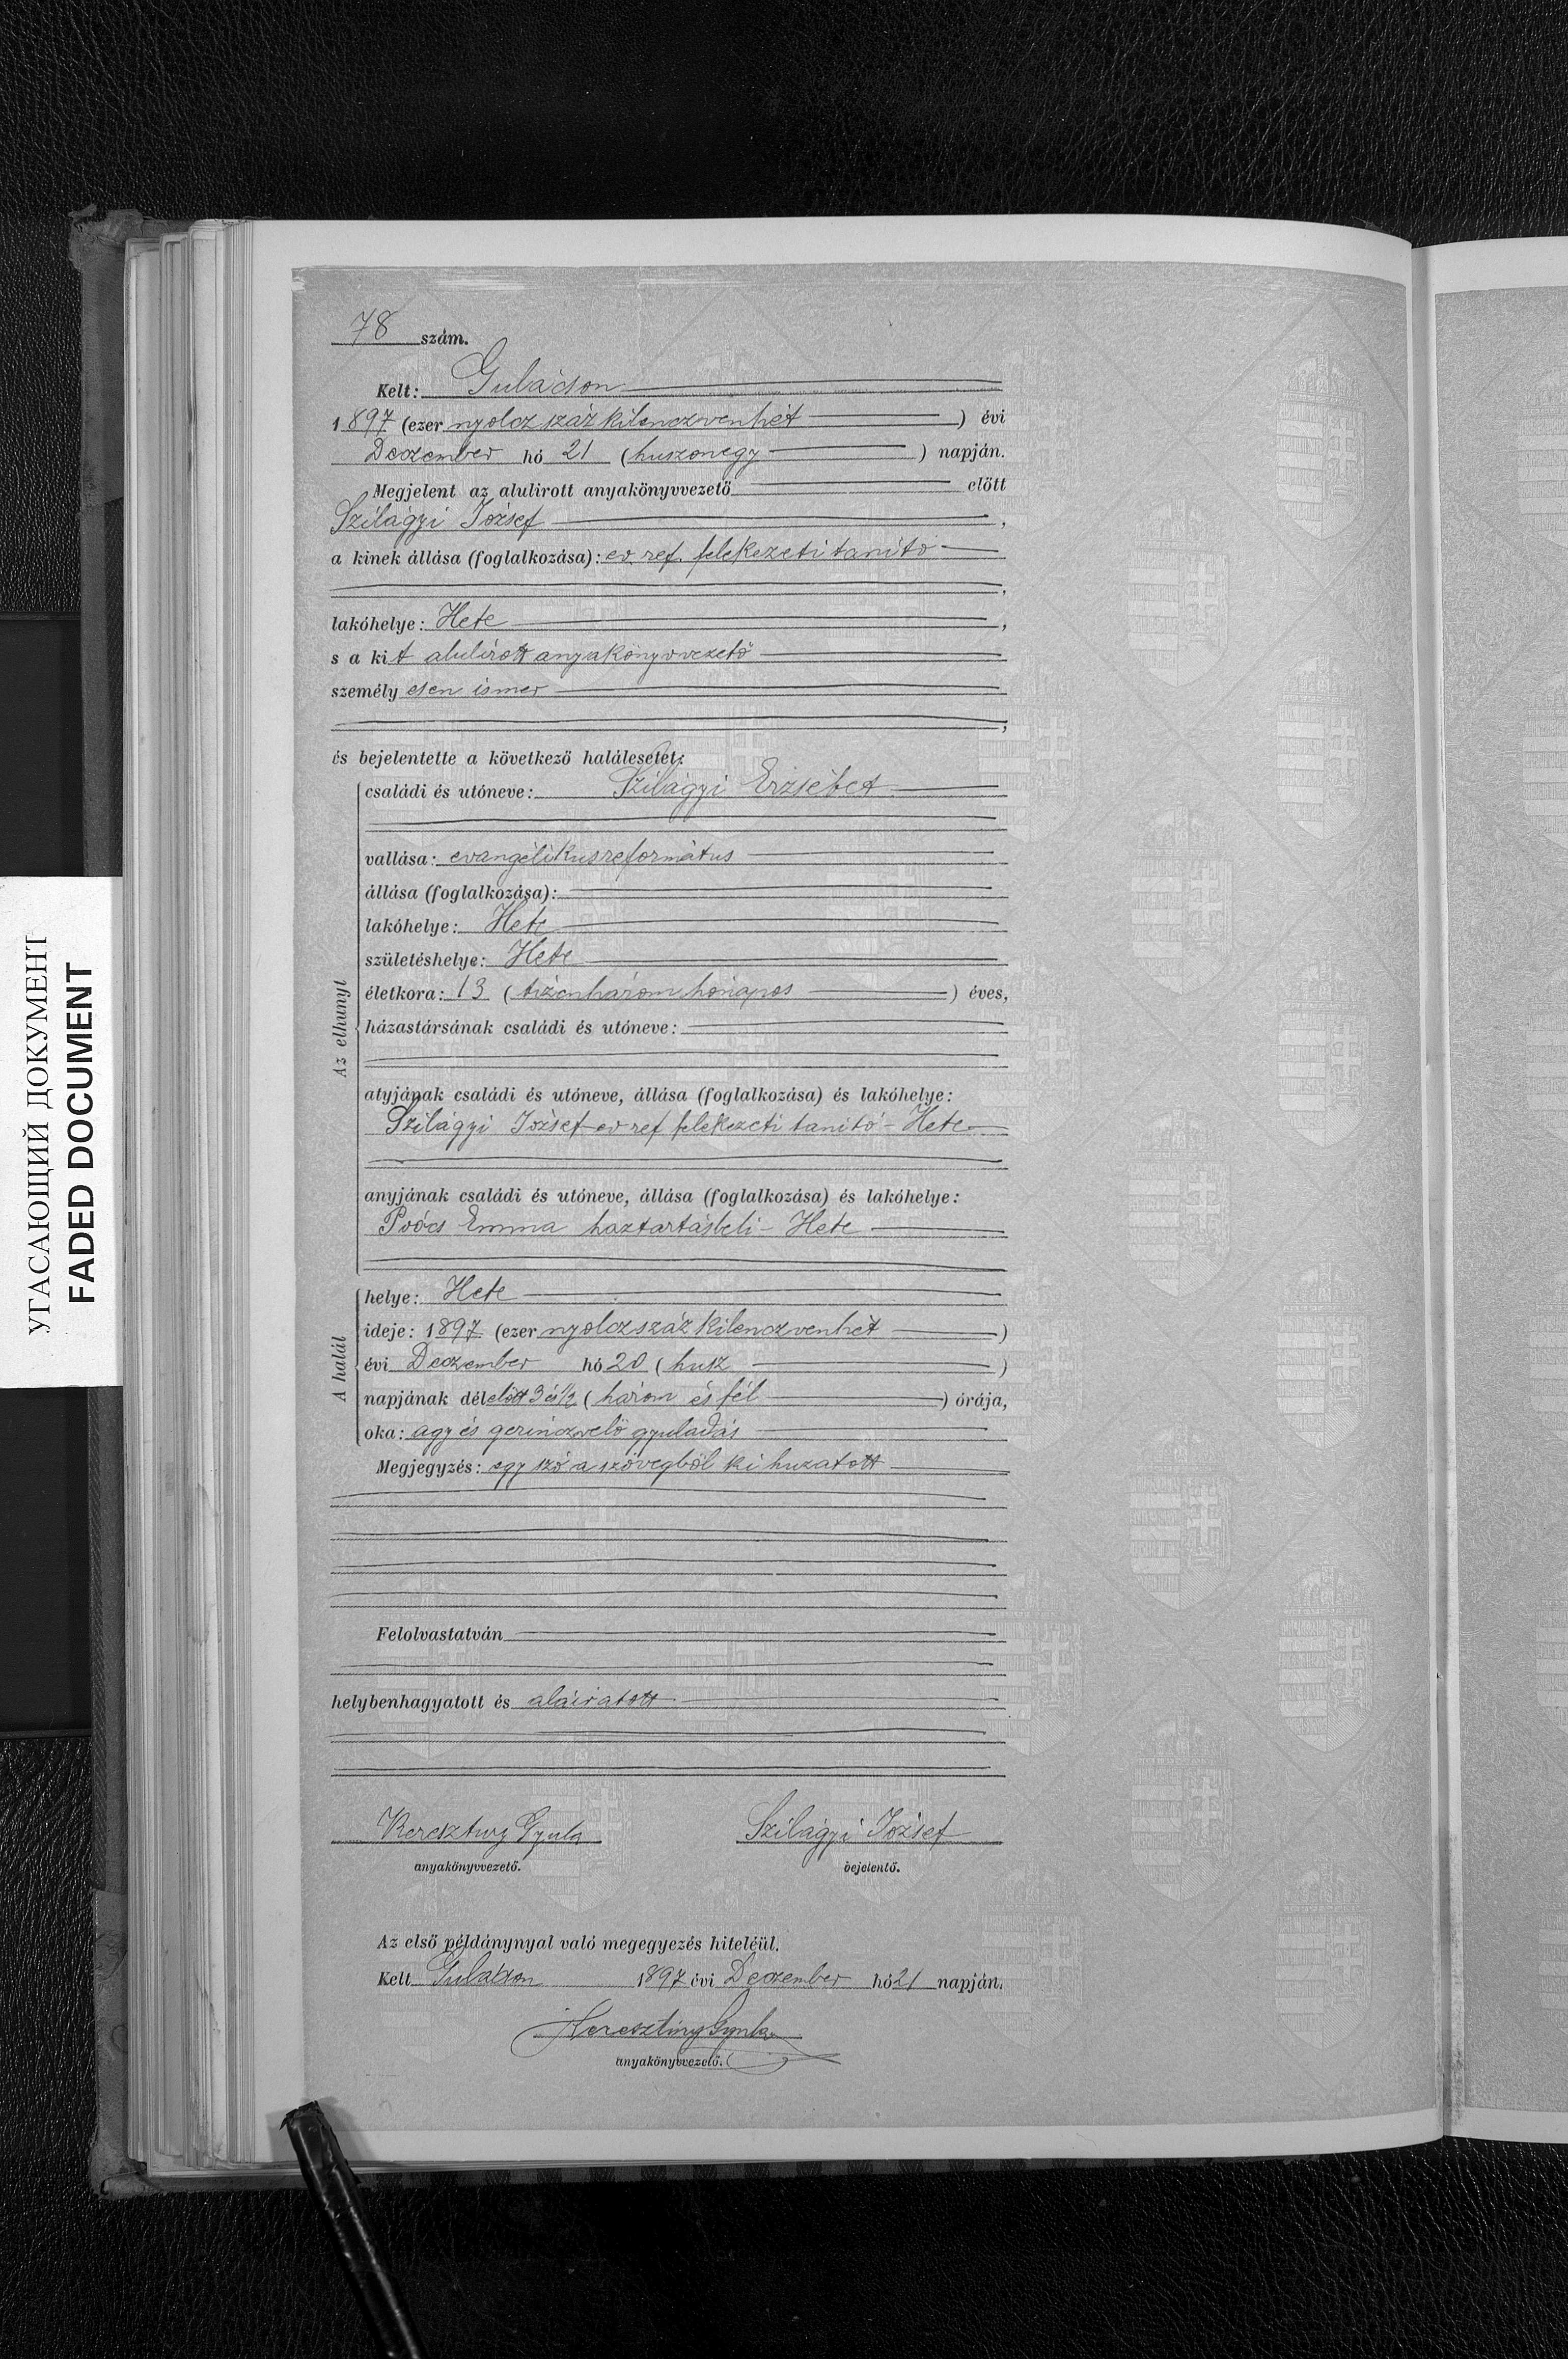 78 szám.
Kelt: Gulácson
1897 (ezer nyolcz száz kilenczvenhét) évi
Deczember hó 21 (huszonegy) napján.
Megjelent az alulirott anyakönyvvezető előtt
Szilágyi József,
a kinek állása (foglalkozása): ev. ref. felekezeti tanító
lakóhelye: Hete,
s a kit alulírott anyakönyvvezető
személyesen ismer
és bejelentette a következő halálesetet:
Az elhunyt
családi és utóneve: Szilágyi Erzsébet
vallása: evangélikus református
állása (foglalkozása):
lakóhelye: Hete
születéshelye: Hete
életkora: 13 (tizenhárom hónapos) éves,
házastársának családi és utóneve:
atyjának családi és utóneve, állása (foglalkozása) és lakóhelye:
Szilágyi József ev ref felekezeti tanító - Hete
anyjának családi és utóneve, állása (foglalkozása) és lakóhelye:
Emma haztartásbeli - Hete
A halál
helye: Hete
ideje: 1897 (ezer nyolczszáz kilenczvenhét)
évi Deczember hó 20 (husz)
napjának délelőtt 3 és 1/2 (három és fél) órája,
oka: agy és gerinczvelő gyuladás
Megjegyzés: egy szó a szövegből ki huzatott
Felolvastatván
helybenhagyatott és aláiratott
Keresztury Gyula Szilágyi József
anyakönyvvezető. bejelentő.
Az első példánynyal való megegyezés hiteléül.
Kelt Gulácson 1897 évi Deczember hó 21 napján.
Keresztury Gyula
anyakönyvvezető.
УГАСАЮЩИЙ ДОКУМЕНТ
FADED DOCUMENT